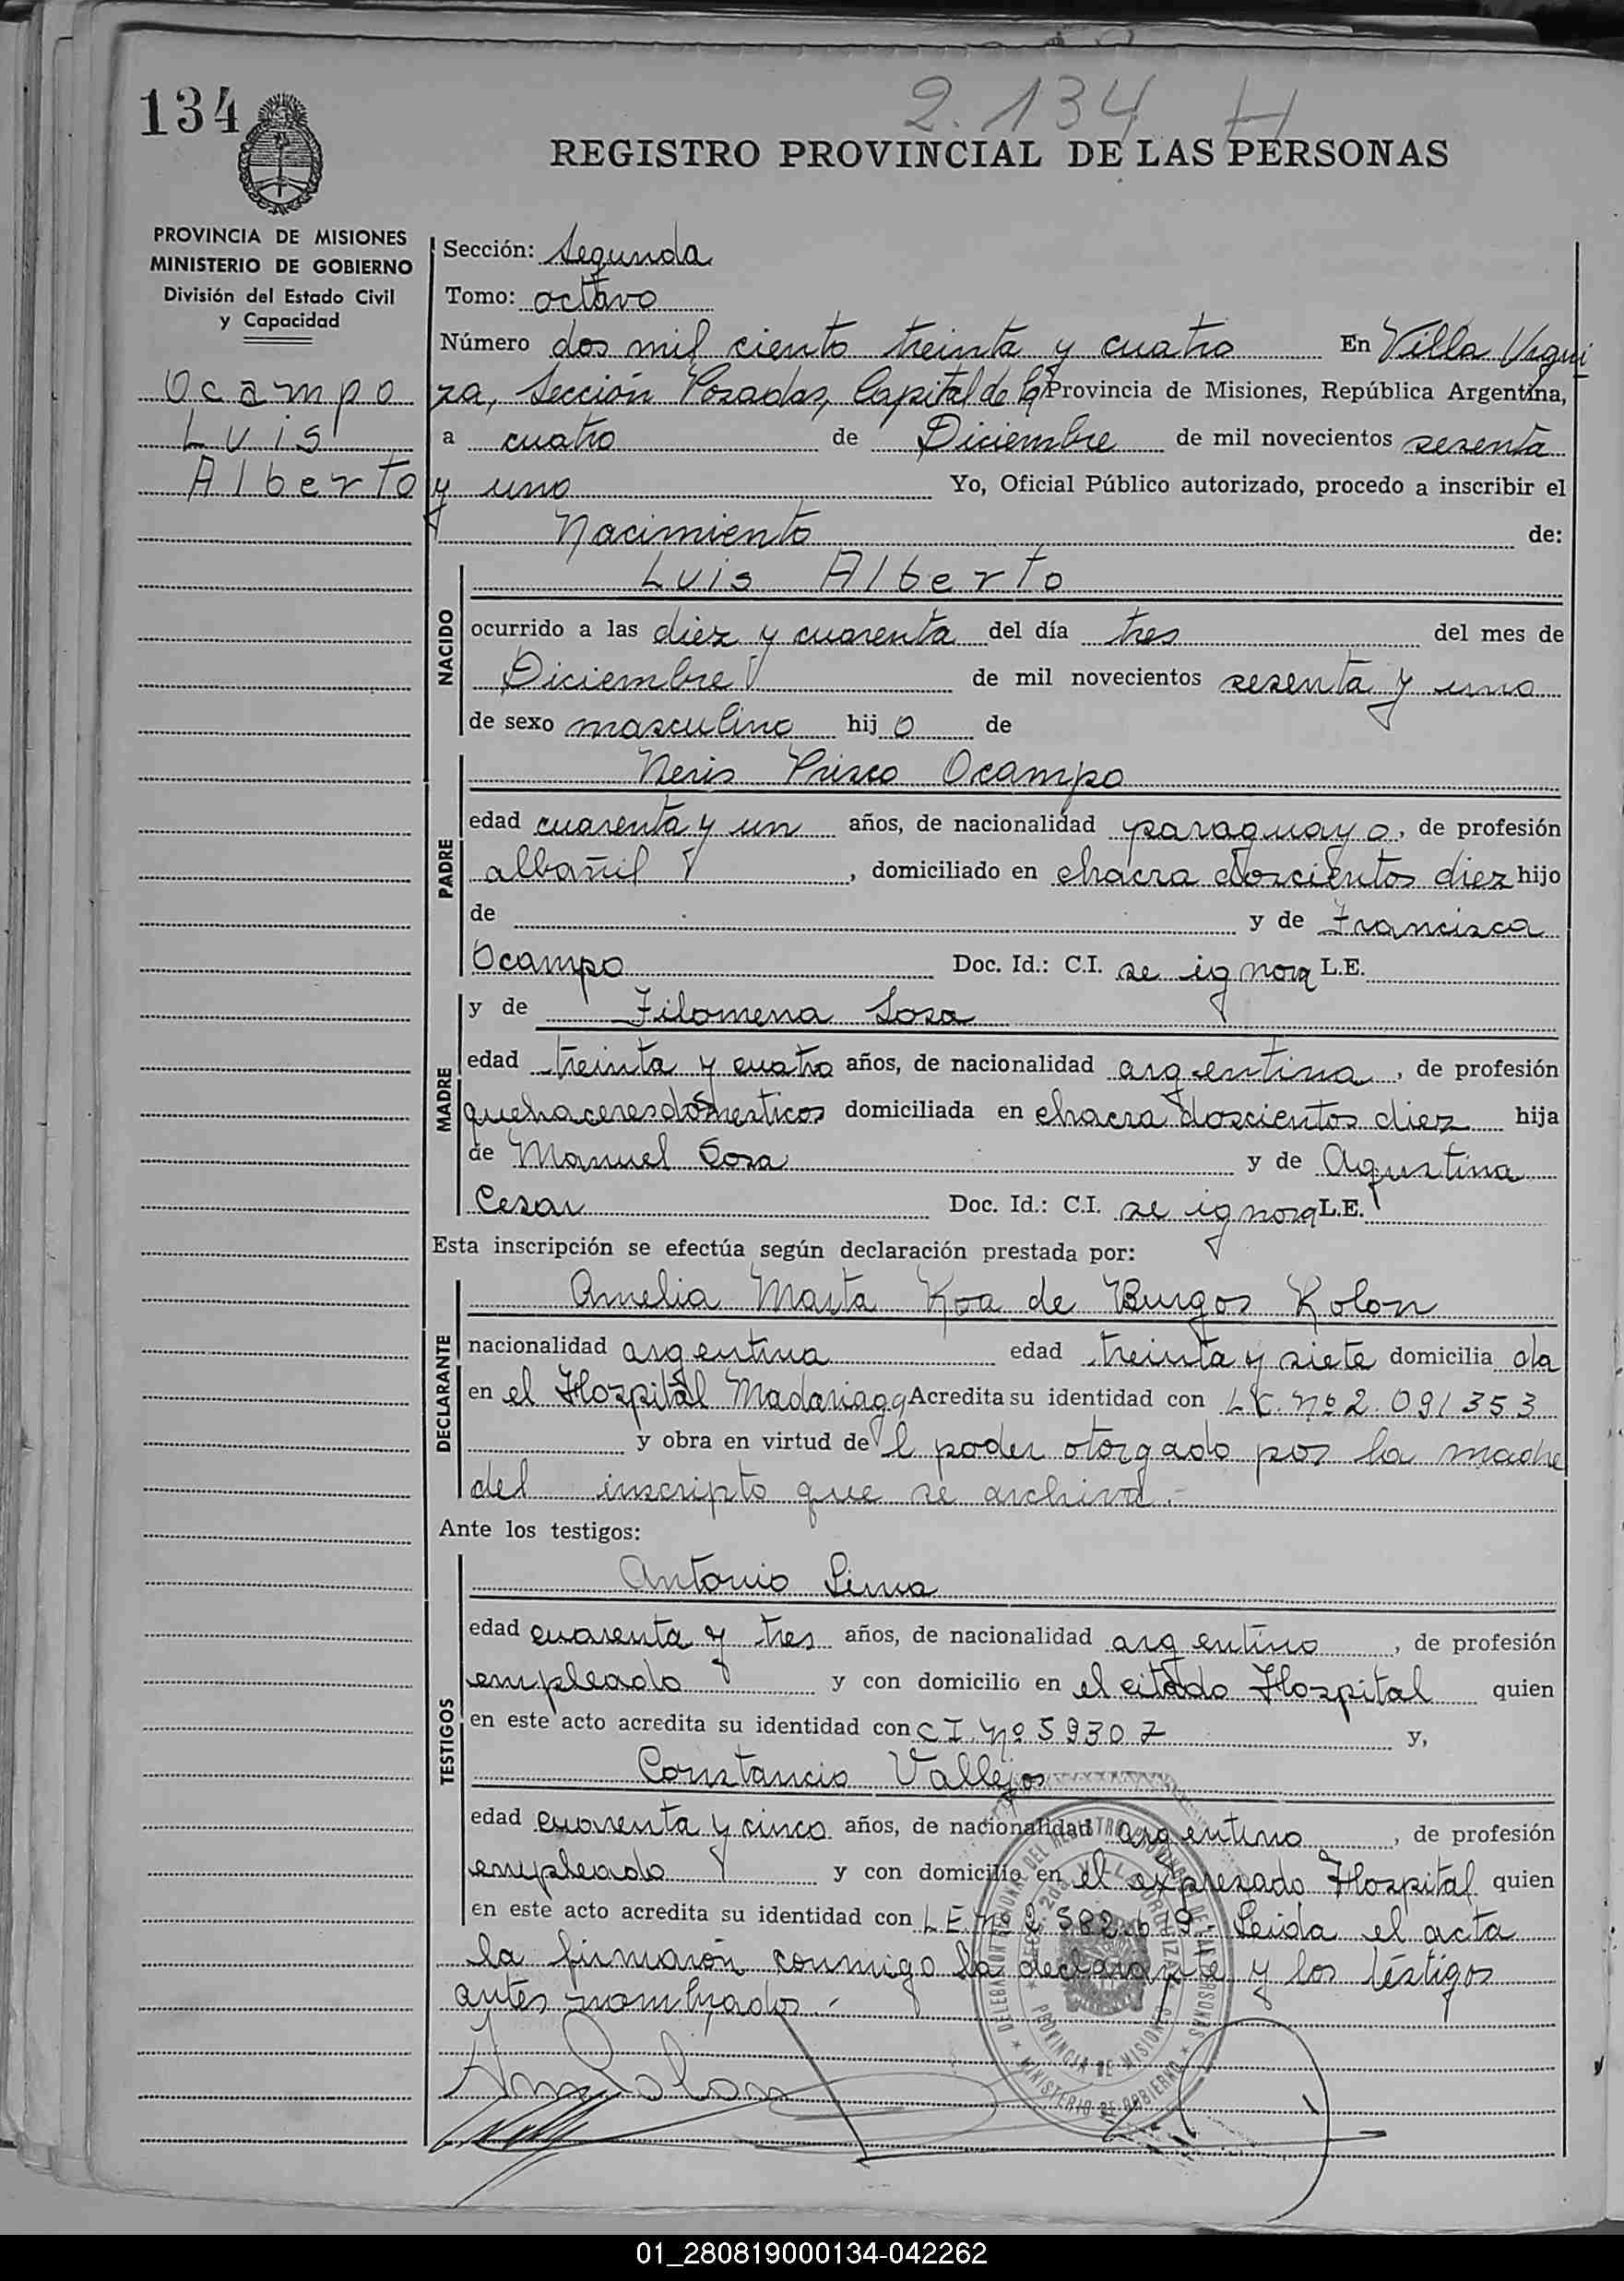 134
2.134 H
REGISTRO PROVINCIAL DE LAS PERSONAS
PROVINCIA DE MISIONES
MINISTERIO DE GOBIERNO
División del Estado Civil
y Capacidad
Ocampo
Luis
Alberto
Sección: Segunda
Tomo: octavo
Número dos mil ciento treinta y cuatro En Villa Urqui
za, Sección Posadas, Capital de la Provincia de Misiones, República Argentina,
a cuatro de Diciembre de mil novecientos sesenta
y uno Yo, Oficial Público autorizado, procedo a inscribir el
Nacimiento de:
NACIDO
Luis Alberto
ocurrido a las diez y cuarenta del día tres del mes de
Diciembre de mil novecientos sesenta y uno
de sexo masculino hijo de
PADRE
Neris Prisco Ocampo
edad cuarenta y un años, de nacionalidad paraguayo, de profesión
albañil, domiciliado en chacra doscientos diez hijo
de y de Francisca
Ocampo Doc. Id.: C.I. se ignora L.E.
MADRE
y de Filomena Sosa
edad treinta y cuatro años, de nacionalidad argentina, de profesión
quehaceres domesticos domiciliada en chacra doscientos diez hija
de Manuel Sosa y de Agustina
Cesar Doc. Id.: C.I. se ignora L.E.
Esta inscripción se efectúa según declaración prestada por:
DECLARANTE
Amelia Marta Koa de Burgos Kolon
nacionalidad argentina edad treinta y siete domicilia da
en el Hospital Madariaga Acredita su identidad con L.C. Nº 2.091353
y obra en virtud del poder otorgado por la madre
del inscripto que se archiva.-
Ante los testigos:
TESTIGOS
Antonio Lima
edad cuarenta y tres años, de nacionalidad argentino, de profesión
empleado y con domicilio en el citado Hospital quien
en este acto acredita su identidad con C I. Nº 59307 y,
Constancio Vallejos
edad cuarenta y cinco años, de nacionalidad argentino, de profesión
empleado y con domicilio en el expresado Hospital quien
en este acto acredita su identidad con L.E. Nº 2.582.619. Leida el acta
la firmarón conmigo la declarante y los téstigos
antes nombrados.-
DELEGACION REGIONAL DEL REGISTRO PROVINCIAL DE LAS PERSONAS
SECC. 2da. VILLA URQUIZA
PROVINCIA DE MISIONES
MINISTERIO DE GOBIERNO
01_280819000134-042262